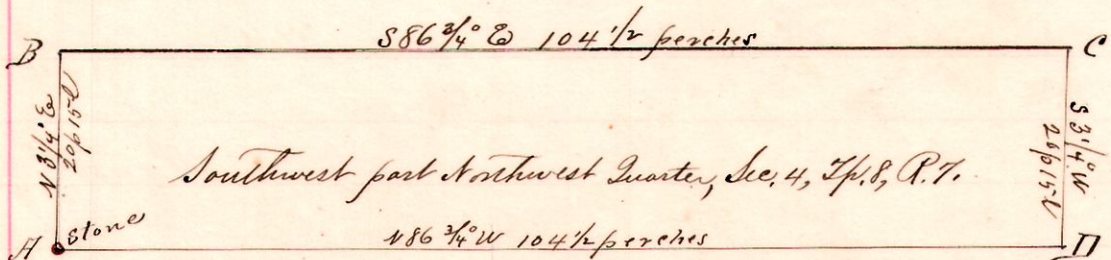 S 86 3/4° E 104 1/2 perches
B
C
N 3 1/4° E
20p 15 l
S 3 1/4° W
20p 15 l
Southwest part Northwest Quarter, Sec. 4, Tp. 8, R. 7.
A
Stone
N 86 3/4° W 104 1/2 perches
D